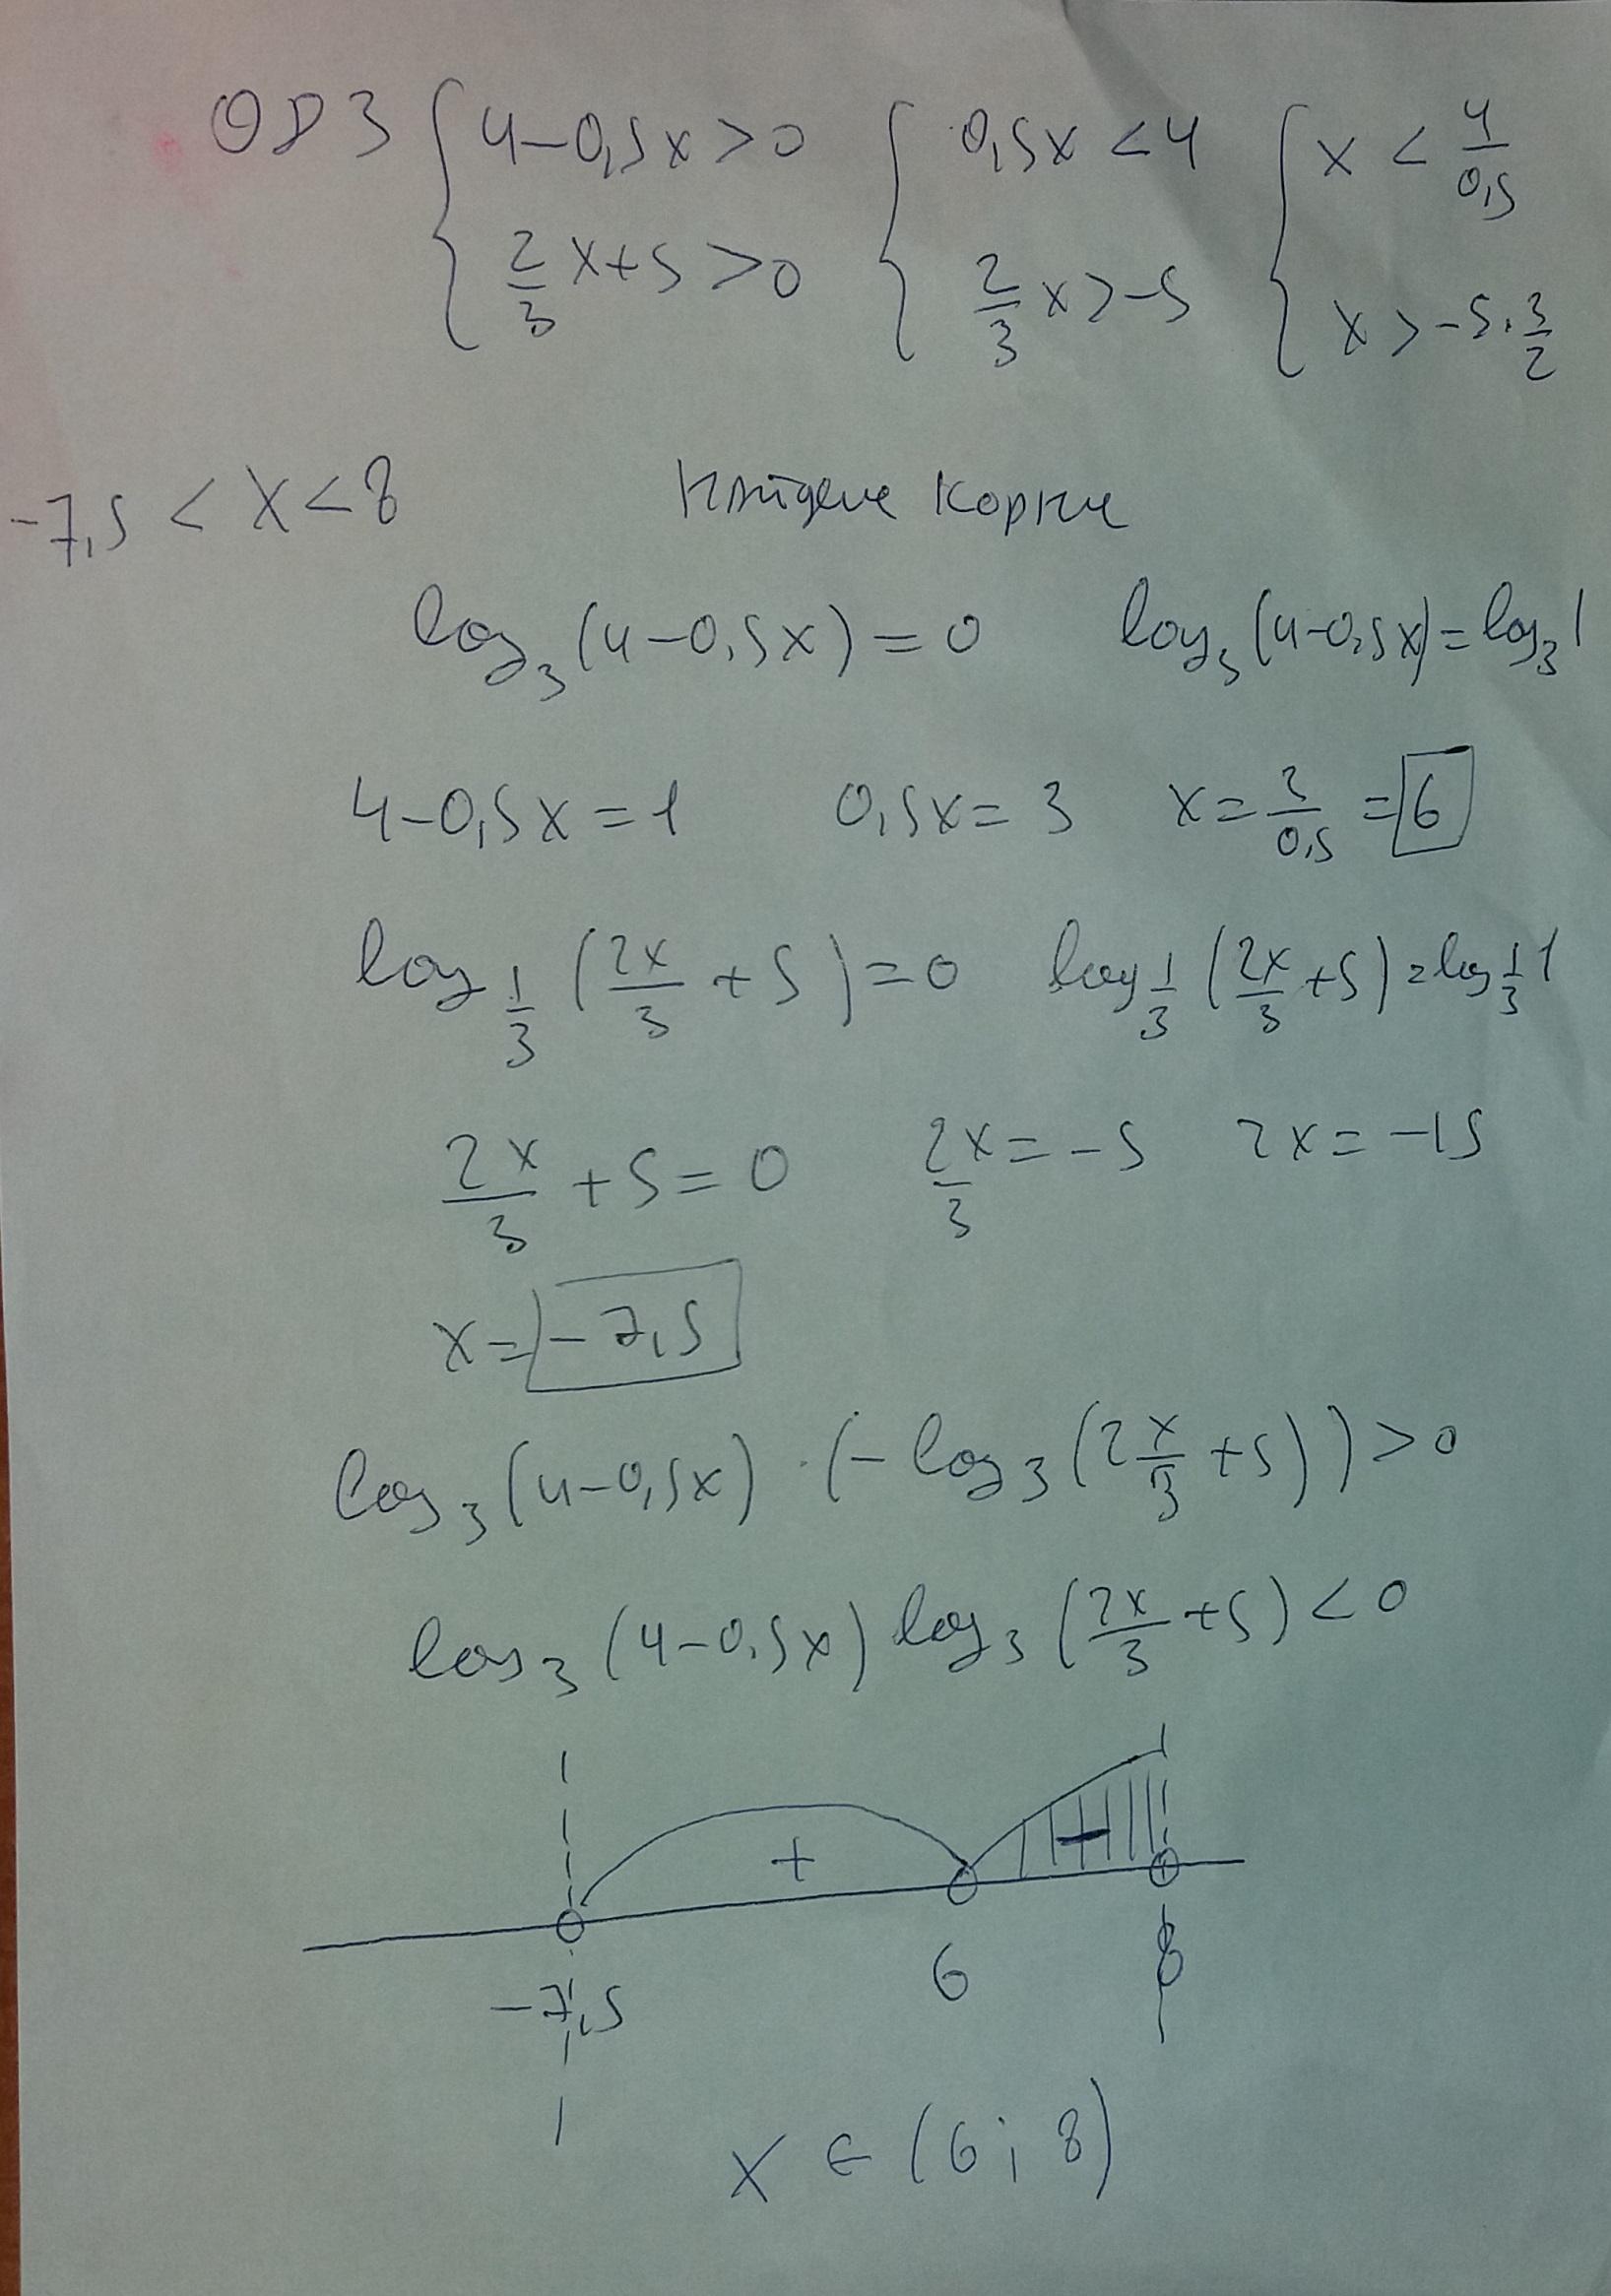 ОДЗ { 4-0,5x>0 { 0,5x<4 { x < 4/0,5
2/3 x+5>0 2/3 x>-5 x>-5·3/2
-7,5 < x<8 Найдем корни
log₃(4-0,5x)=0 log₃(4-0,5x)=log₃1
4-0,5x=1 0,5x=3 x=3/0,5=6
log_1/3(2x/3+5)=0 log_1/3(2x/3+5)=log_1/3 1
2x/3+5=0 2x/3=-5 2x=-15
x=-7,5
log₃(4-0,5x)·(-log₃(2x/3+5))>0
log₃(4-0,5x)log₃(2x/3+5)<0
+ -
-7,5 6 8
x∈(6;8)